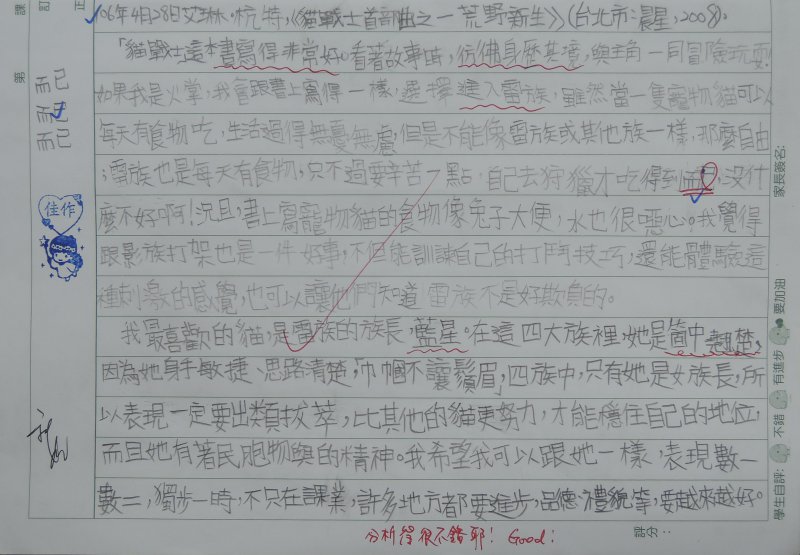 106年4月28日艾琳．杭特,《貓戰士首部曲之一荒野新生》(台北市:晨星,2008).
「貓戰士」這本書寫得非常好。看著故事時,彷彿身歷其境,與主角一同冒險玩耍!
如果我是火掌,我會跟書上寫得一樣,選擇進入雷族,雖然當一隻寵物貓可以
每天有食物吃,生活過得無憂無慮,但是不能像雷族或其他族一樣,那麼自由
;雷族也是每天有食物,只不過要辛苦一點,自己去狩獵才吃得到而已,沒什
麼不好啊!況且,書上寫寵物貓的食物像兔子大便,水也很噁心。我覺得
跟影族打架也是一件好事,不但能訓練自己的打鬥技巧,還能體驗這
種刺激的感覺,也可以讓他們知道雷族不是好欺負的。
我最喜歡的貓,是雷族的族長,藍星。在這四大族裡,她是箇中翹楚,
因為她身手敏捷、思路清楚,巾幗不讓鬚眉,四族中,只有她是女族長,所
以表現一定要出類拔萃,比其他的貓更努力,才能穩住自己的地位,
而且她有著民胞物與的精神。我希望我可以跟她一樣,表現數一
數二,獨步一時,不只在課業,許多地方都要進步,品德、禮貌等,要越來越好。
分析得很不錯耶! Good!
評分:
課
訂
正
第
而已
而已
而已
佳作
家長簽名:
學生自評:
不錯
有進步
要加油